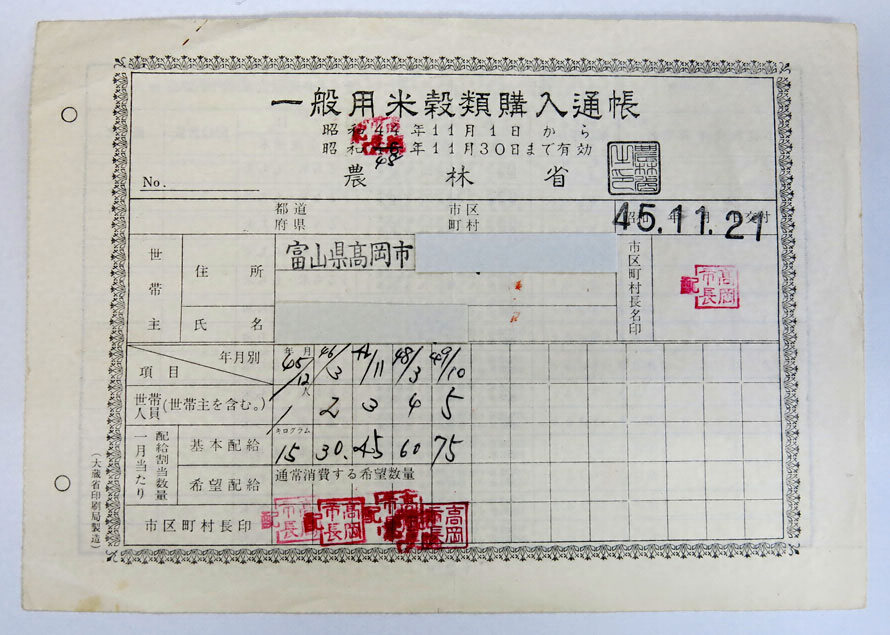 一般用米穀類購入通帳
昭和44年11月1日から
昭和 年11月30日まで有効
48
農林省
農林省之印
No.
都道府県
市区町村
昭和 年 月 日交付
45.11.21
世帯主
住所
富山県高岡市
市区町村長名印
高岡市長
氏名
年月別
項目
年 月
45/12
46/3
/11
48/3
49/10
世帯人員(世帯主を含む。)
人
1 2 3 4 5
一月当たり
配給割当数量
基本配給
キログラム
15 30. 45 60 75
希望配給
通常消費する希望数量
市区町村長印
高岡市長
高岡市長
高岡市長
高岡
(大蔵省印刷局製造)